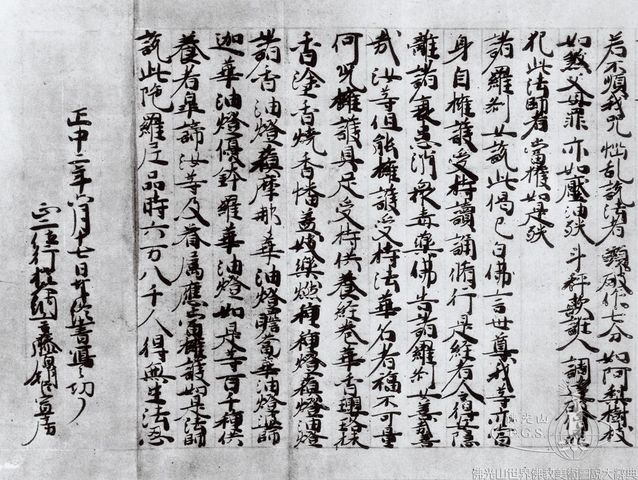 若不順我咒 惱亂說法者 頭破作七分 如阿梨樹枝
如殺父母罪 亦如壓油殃 斗秤欺誑人 調達破僧罪
犯此法師者 當獲如是殃
諸羅刹女說此偈已白佛言世尊我等亦當
身自擁護受持讀誦脩行是經者令得安隱
離諸衰患消衆毒藥佛告諸羅刹女善哉善
哉汝等但能擁護受持法華名者福不可量
何況擁護具足受持供養經卷華香瓔珞抹
香塗香燒香幡蓋妓樂燃種種燈蘇燈油燈
諸香油燈蘇摩那華油燈瞻蔔華油燈婆師
迦華油燈優鉢羅華油燈如是等百千種供
養者睪諦汝等及眷屬應當擁護如是法師
說此陀羅尼品時六万八千人得無生法忍
正中二年六月十七日
正二位行權
佛光山
F.G.S.
佛光山世界佛教美術圖說大辭典